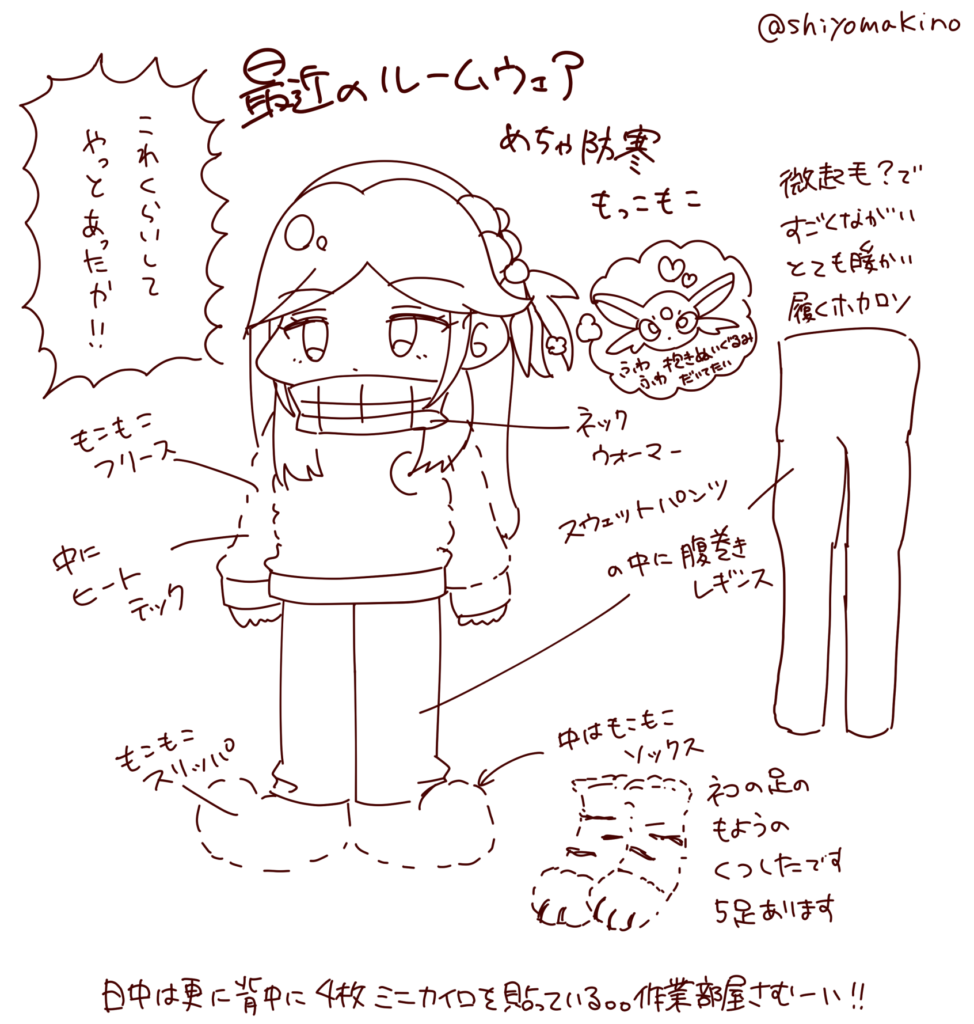 @shiyomakino
最近のルームウェア
めちゃ防寒
もっこもこ
これくらいして
やっとあったか!!
微起毛?で
すごくながい
とても暖かい
履くホカロン
ふわ
ふわ
抱きぬいぐるみ
だいてたい
ネック
ウォーマー
もこもこ
フリース
中に
ヒート
テック
スウェットパンツ
の中に腹巻き
レギンス
もこもこ
スリッパ
中はもこもこ
ソックス
ネコの足の
もようの
くつしたです
5足あります
日中は更に背中に4枚ミニカイロを貼っている。。作業部屋さむーい!!